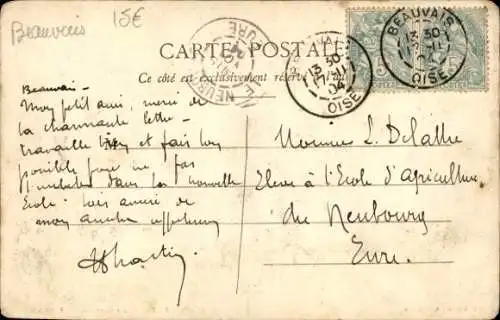 Beauvais
15€
CARTE POSTALE
Ce côté est exclusivement réservé
BEAUVAIS
13 30
OISE
BEAUVAIS
13 30
04
OISE
EURE
Beauvais -
Mon petit ami, merci de
la charmante lettre -
travaille bien et fais ton
possible pour ne pas
dans la nouvelle
Ecole : Sois assuré de
mon affectueux
Monsieur L. Delattre
Elève à l'Ecole d'Agriculture
du Neubourg
Eure.